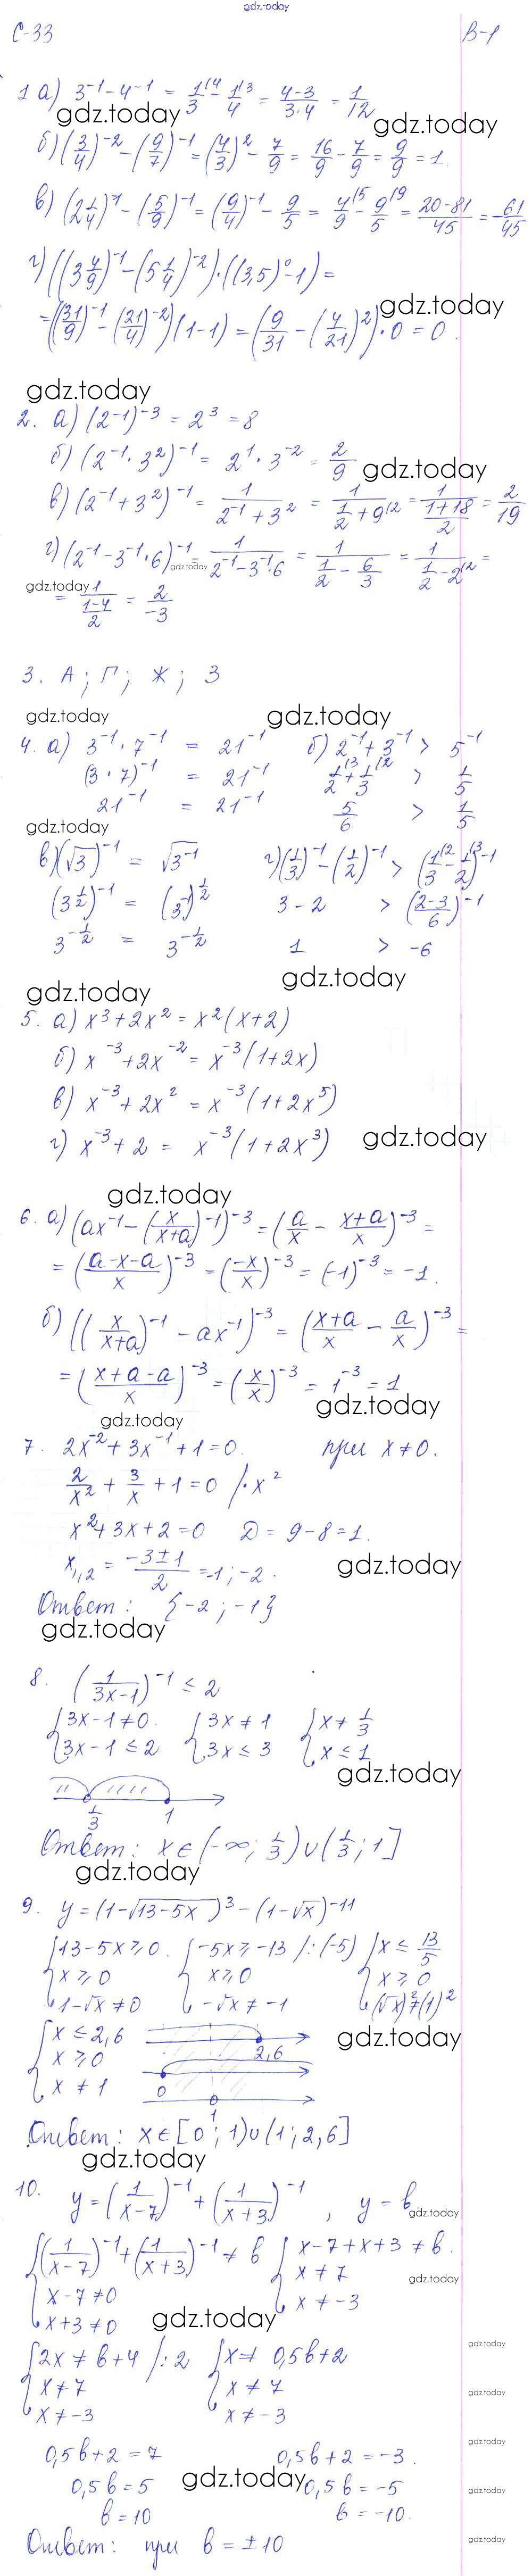 gdz.today
С-33 В-1
1 а) 3⁻¹ - 4⁻¹ = 1/3 - 1/4 = (4-3)/(3·4) = 1/12
gdz.today gdz.today
б) (3/4)⁻² - (9/7)⁻¹ = (4/3)² - 7/9 = 16/9 - 7/9 = 9/9 = 1.
в) (2 1/4)⁻¹ - (5/9)⁻¹ = (9/4)⁻¹ - 9/5 = 4/9 - 9/5 = (20-81)/45 = -61/45
г) ((3 4/9)⁻¹ - (5 1/4)⁻²)·((3,5)⁰ - 1) =
gdz.today
= ((31/9)⁻¹ - (21/4)⁻²)(1-1) = (9/31 - (4/21)²)·0 = 0.
gdz.today
2. а) (2⁻¹)⁻³ = 2³ = 8
б) (2⁻¹·3²)⁻¹ = 2¹·3⁻² = 2/9
gdz.today
в) (2⁻¹+3²)⁻¹ = 1/(2⁻¹+3²) = 1/(1/2+9) = 1/((1+18)/2) = 2/19
г) (2⁻¹-3⁻¹·6)⁻¹ = 1/(2⁻¹-3⁻¹·6) = 1/(1/2 - 6/3) = 1/(1/2 - 2) =
gdz.today gdz.today
= 1/((1-4)/2) = 2/-3
3. А; Г; Ж; З
gdz.today gdz.today
4. а) 3⁻¹·7⁻¹ = 21⁻¹ б) 2⁻¹+3⁻¹ > 5⁻¹
(3·7)⁻¹ = 21⁻¹ 1/2+1/3 > 1/5
21⁻¹ = 21⁻¹ 5/6 > 1/5
gdz.today
в) (√3)⁻¹ = √3⁻¹ г) (1/3)⁻¹ - (1/2)⁻¹ > (1/3 - 1/2)⁻¹
(3^(1/2))⁻¹ = (3⁻¹)^(1/2) 3 - 2 > ((2-3)/6)⁻¹
3^(-1/2) = 3^(-1/2) 1 > -6
gdz.today gdz.today
5. а) x³+2x² = x²(x+2)
б) x⁻³+2x⁻² = x⁻³(1+2x)
в) x⁻³+2x² = x⁻³(1+2x⁵)
г) x⁻³+2 = x⁻³(1+2x³)
gdz.today
gdz.today
6. а) (ax⁻¹ - (x/(x+a))⁻¹)⁻³ = (a/x - (x+a)/x)⁻³ =
= ((a-x-a)/x)⁻³ = (-x/x)⁻³ = (-1)⁻³ = -1.
б) ((x/(x+a))⁻¹ - ax⁻¹)⁻³ = ((x+a)/x - a/x)⁻³ =
= ((x+a-a)/x)⁻³ = (x/x)⁻³ = 1⁻³ = 1
gdz.today gdz.today
7. 2x⁻²+3x⁻¹+1=0. при x≠0.
2/x² + 3/x + 1 = 0 /·x²
x²+3x+2=0 D = 9-8=1.
x₁,₂ = (-3±1)/2 = -1; -2.
gdz.today
Ответ: {-2; -1}
gdz.today
8. (1/(3x-1))⁻¹ ≤ 2
{3x-1≠0. {3x≠1 {x≠1/3
{3x-1≤2 {3x≤3 {x≤1
gdz.today
1/3 1
Ответ: x∈(-∞; 1/3)∪(1/3; 1]
gdz.today
9. y=(1-√(13-5x))³-(1-√x)⁻¹¹
{13-5x≥0. {-5x≥-13 /:(-5) {x≤13/5
{x≥0 {x≥0 {x≥0
{1-√x≠0 {-√x≠-1 {(√x)²≠(1)²
gdz.today
{x≤2,6
2,6
{x≥0
0
{x≠1
1
Ответ: x∈[0; 1)∪(1; 2,6]
gdz.today
10. y=(1/(x-7))⁻¹+(1/(x+3))⁻¹, y=b
gdz.today
{(1/(x-7))⁻¹+(1/(x+3))⁻¹≠b {x-7+x+3≠b.
{x-7≠0 {x≠7
gdz.today
{x+3≠0 {x≠-3
gdz.today
gdz.today
{2x≠b+4 /:2 {x≠0,5b+2
{x≠7 {x≠7
gdz.today
{x≠-3 {x≠-3
gdz.today
0,5b+2=7 0,5b+2=-3.
gdz.today
0,5b=5 0,5b=-5
gdz.today
b=10 b=-10.
gdz.today
Ответ: при b=±10
gdz.today